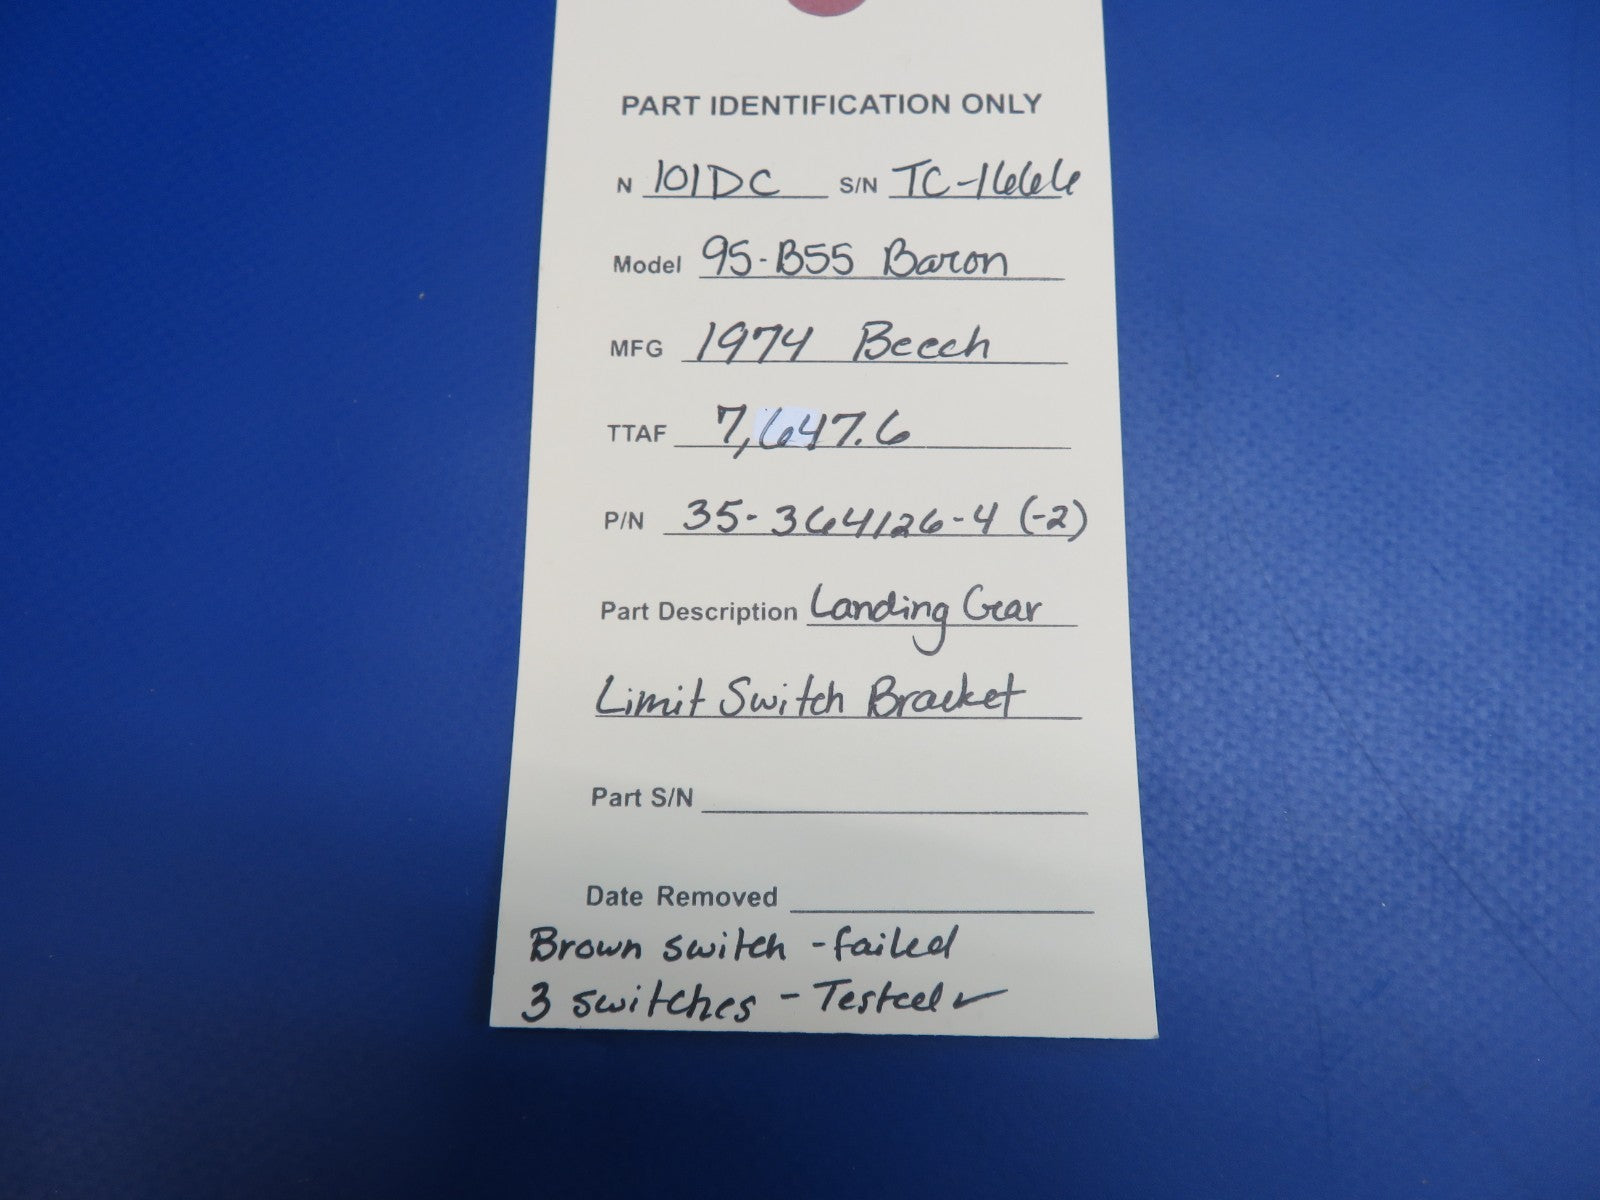 PART IDENTIFICATION ONLY
N 101DC S/N TC-1666
Model 95-B55 Baron
MFG 1974 Beech
TTAF 7,647.6
P/N 35-364126-4 (-2)
Part Description Landing Gear
Limit Switch Bracket
Part S/N
Date Removed
Brown switch - failed
3 switches - Tested ✓